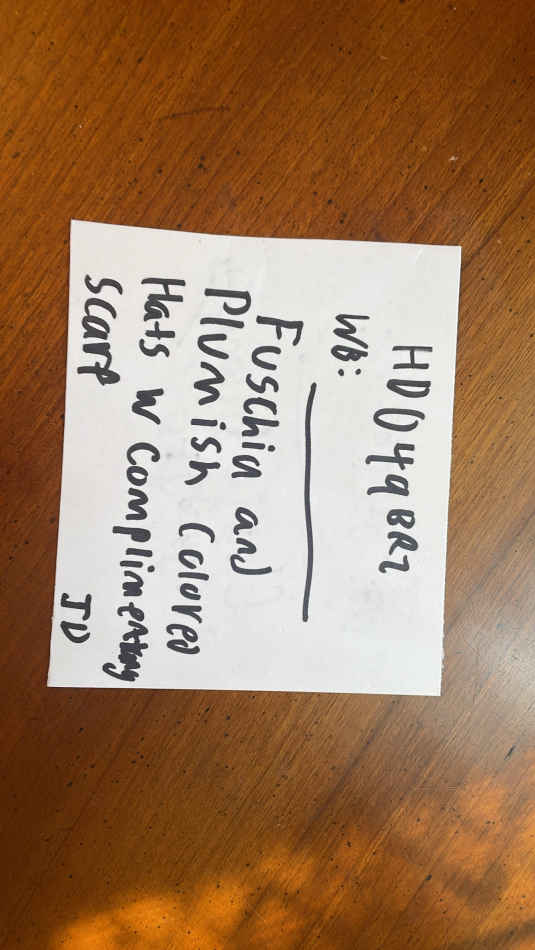 HD049BRZ
WB:
Fuschia and
Plumish Colored
Hats w Complimenting
Scarf
JD